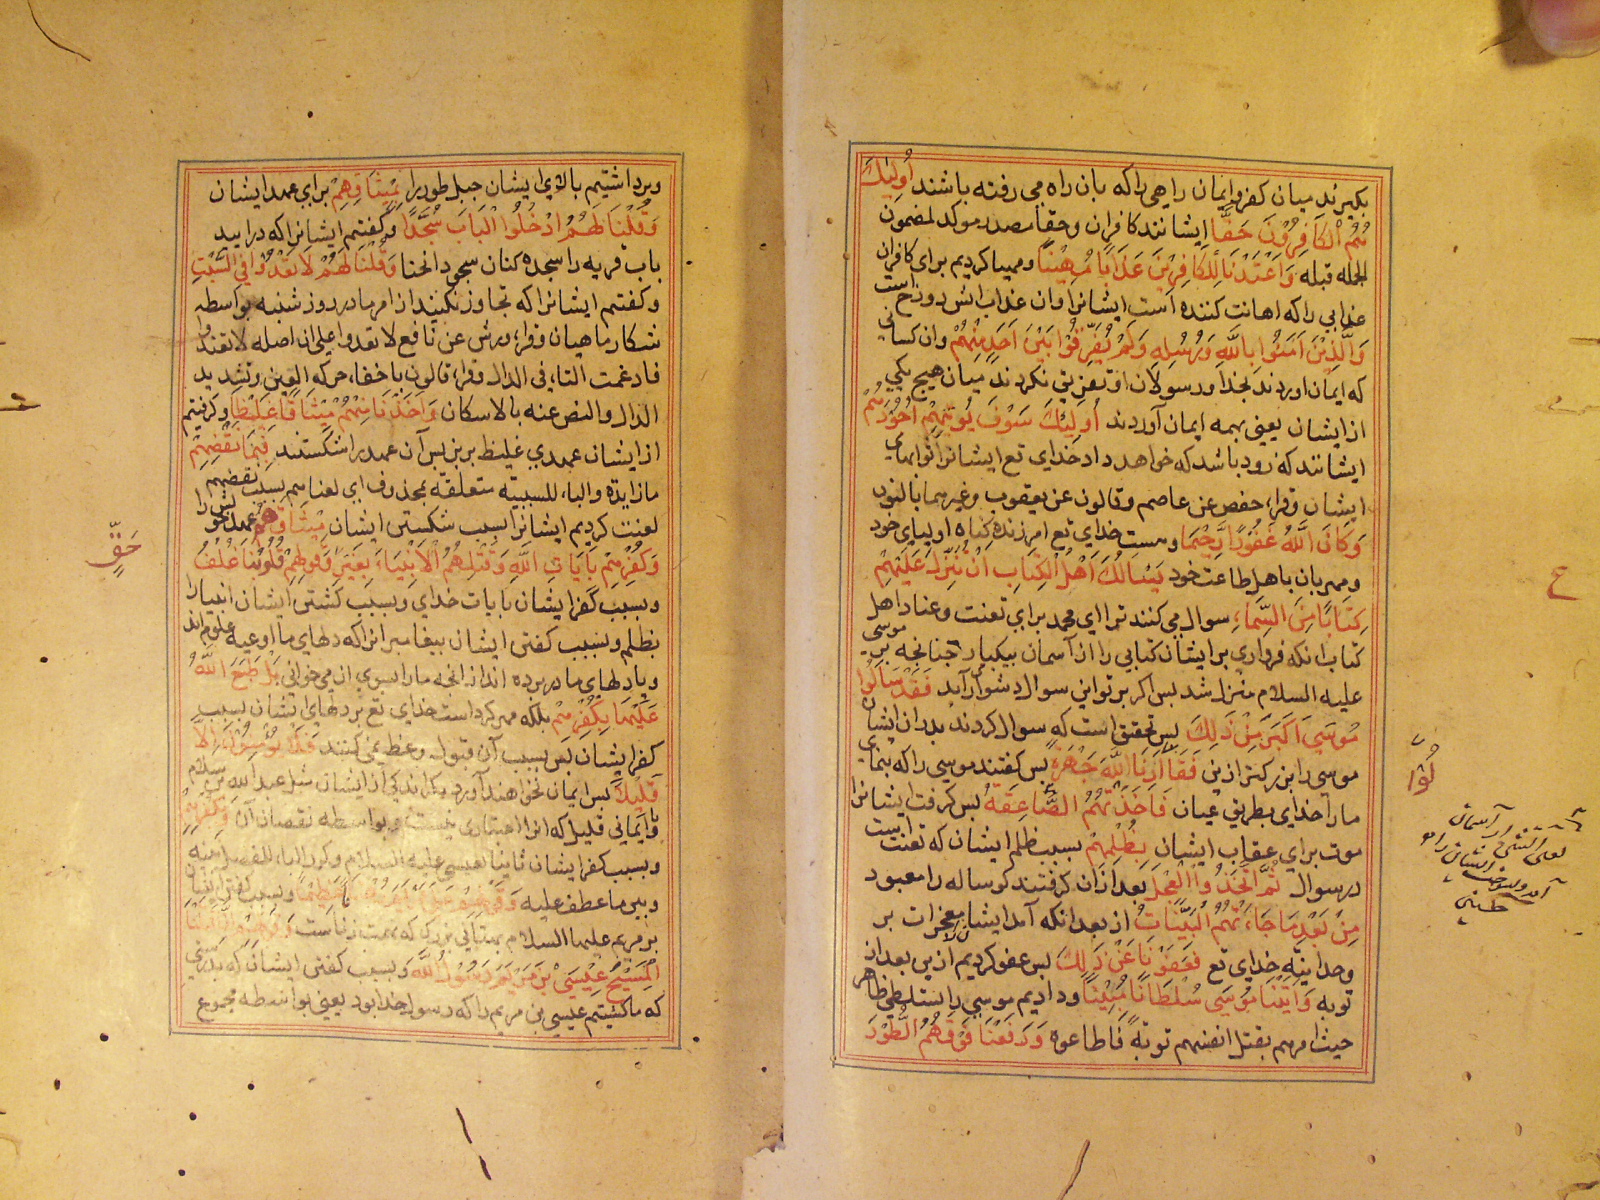 بکیرند میان کفر و ایمان راهی را که بان راه می رفته باشند أُولَٰئِكَ
هُمُ الْكَافِرُونَ حَقًّا ایشانند کافران و حقا مصدر موکد لمضمون
الجمله قبله وَأَعْتَدْنَا لِلْكَافِرِينَ عَذَابًا مُهِينًا و مهیا کردیم برای کافران
عذابی را که اهانت کننده است ایشانرا وان عذاب اتش دوزخ است
وَالَّذِينَ آمَنُوا بِاللَّهِ وَرُسُلِهِ وَلَمْ يُفَرِّقُوا بَيْنَ أَحَدٍ مِنْهُمْ وان کسانی
که ایمان اوردند بخدا و رسولان او تفریق نکردند میان هیچ یکی
از ایشان یعنی بهمه ایمان آوردند أُولَٰئِكَ سَوْفَ يُؤْتِيهِمْ أُجُورَهُمْ
ایشانند که زود باشد که خواهد داد خدای تع ایشانرا ثوابهای
ایشان وقراء حفص عن عاصم وقالون عن یعقوب وغیرهما بالنون
وَكَانَ اللَّهُ غَفُورًا رَحِيمًا وهست خدای تع امرزنده کناه اولیای خود
ومهربان باهل طاعت خود يَسْأَلُكَ أَهْلُ الْكِتَابِ أَنْ تُنَزِّلَ عَلَيْهِمْ
كِتَابًا مِنَ السَّمَاءِ سوال می کنند ترا ای محمد برای تعنت وعناد اهل
کتاب انکه فرواری بر ایشان کتابی را از آسمان بیکبار چنانچه بر موسی
علیه السلام منزل شد پس اکر بر تو این سوال دشوار آید فَقَدْ سَأَلُوا
مُوسَى أَكْبَرَ مِنْ ذَٰلِكَ پس تحقیق است که سوال کردند پدران ایشان
موسی را بزرکتر ازین فَقَالُوا أَرِنَا اللَّهَ جَهْرَةً پس کفتند موسی را که بنمای
مارا خدای بطریق عیان فَأَخَذَتْهُمُ الصَّاعِقَةُ پس کرفت ایشانرا
موت برای عقاب ایشان بِظُلْمِهِمْ بسبب ظلم ایشان که تعنت است
در سوال ثُمَّ اتَّخَذُوا الْعِجْلَ بعد ازان کرفتند کوساله را معبود
مِنْ بَعْدِ مَا جَاءَتْهُمُ الْبَيِّنَاتُ از بعد انکه آمد ایشانرا معجزات بر
وحدانیة خدای تع فَعَفَوْنَا عَنْ ذَٰلِكَ پس عفو کردیم ازین بعد از
توبه وَآتَيْنَا مُوسَى سُلْطَانًا مُبِينًا و دادیم موسی را تسلطی ظاهر
حیث امرهم بقتل انفسهم توبة فاطاعوه وَرَفَعْنَا فَوْقَهُمُ الطُّورَ
ع
وبرداشتیم بالای ایشان جبل طور را بِمِيثَاقِهِمْ برای عهد ایشان
وَقُلْنَا لَهُمُ ادْخُلُوا الْبَابَ سُجَّدًا وکفتیم ایشانرا که درایید
باب قریه را سجده کنان سجود انحنا وَقُلْنَا لَهُمْ لَا تَعْدُوا فِي السَّبْتِ
وکفتیم ایشانرا که تجاوز نکنید از امر ما در روز شنبه بواسطه
شکار ماهیان وقراء ورش عن نافع لا تعدوا علی ان اصله لا تعتدوا
فادغمت التاء فی الدال وقراء قالون باخفاء حرکه العین وتشدید
الدال والنص عنه بالاسکان وَأَخَذْنَا مِنْهُمْ مِيثَاقًا غَلِيظًا وکرفتیم
از ایشان عهدی غلیظ برین پس آن عهد را شکستند فَبِمَا نَقْضِهِمْ
ما زایدة والباء للسببیة متعلقة بمحذوف ای لعناهم بسبب نقضهم
لعنت کردیم ایشانرا بسبب شکستن ایشان مِيثَاقَهُمْ عهد خویش را
وَكُفْرِهِمْ بِآيَاتِ اللَّهِ وَقَتْلِهِمُ الْأَنْبِيَاءَ بِغَيْرِ حَقٍّ وَقَوْلِهِمْ قُلُوبُنَا غُلْفٌ
وبسبب کفر ایشان بایات خدای وبسبب کشتن ایشان انبیارا
بظلم وبسبب کفتن ایشان پیغامبرانرا که دلهای ما اوعیه علوم اند
ویا دلهای ما در پرده اند از انچه مارا بسوی ان می خوانی بَلْ طَبَعَ اللَّهُ
عَلَيْهَا بِكُفْرِهِمْ بلکه مهر کرد است خدای تع بر دلهای ایشان بسبب
کفر ایشان پس بسبب آن قبول وعظ نمی کنند فَلَا يُؤْمِنُونَ إِلَّا
قَلِيلًا پس ایمان نخواهند آورد مکر اندکی از ایشان مثل عبد الله بن سلام
ویا ایمانی قلیل که انرا اعتباری نیست بواسطه نقصان آن وَبِكُفْرِهِمْ
وبسبب کفر ایشان ثانیا بعیسی علیه السلام وکرر الباء للفصل بینه
وبین ما عطف علیه وَقَوْلِهِمْ عَلَى مَرْيَمَ بُهْتَانًا عَظِيمًا وبسبب کفتن ایشان
بر مریم علیها السلام بهتانی بزرک که تهمت زناست وَقَوْلِهِمْ إِنَّا قَتَلْنَا
الْمَسِيحَ عِيسَى ابْنَ مَرْيَمَ رَسُولَ اللَّهِ وبسبب کفتن ایشان که بدرستی
که ما کشتیم عیسی بن مریم را که رسول خدا بود یعنی بواسطه مجموع
حَقٍّ